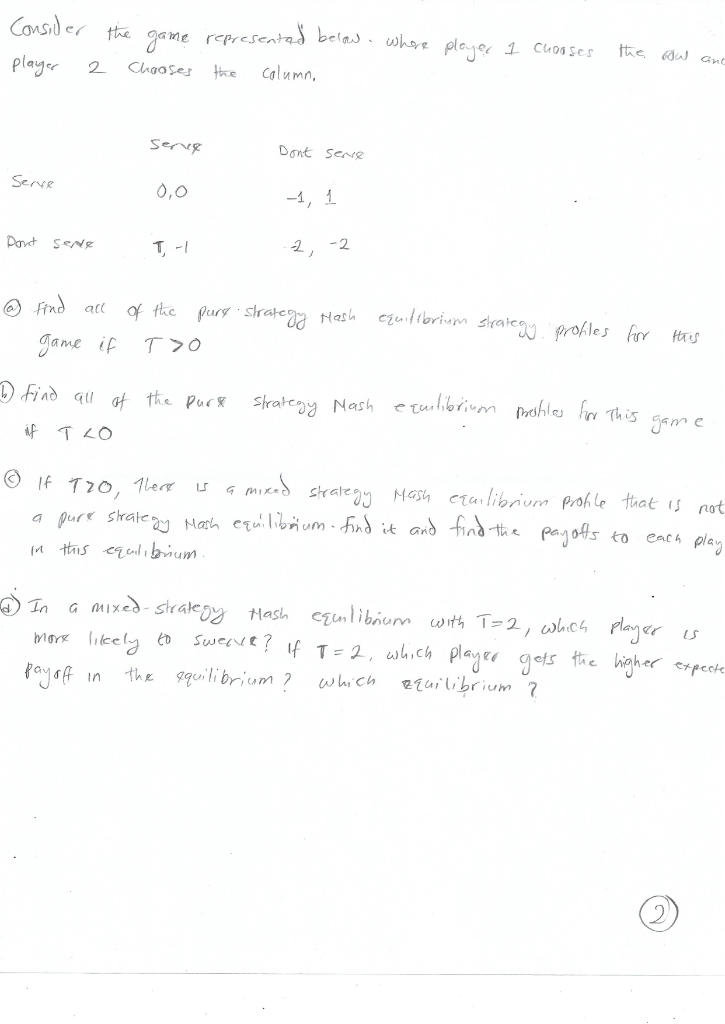 Consider the game represented below. where player 1 chooses the row and
player 2 chooses the column.
Serve Dont serve
Serve 0,0 -1, 1
Dont serve T, -1 2, -2
(a) Find all of the pure strategy Nash equilibrium strategy profiles for this
game if T>0
b) find all of the pure strategy Nash equilibrium profiles for this game
if T <0
(c) If T≥0, There is a mixed strategy Nash equilibrium profile that is not
a pure strategy Nash equilibrium. find it and find the payoffs to each play
in this equilibrium.
(d) In a mixed-strategy Nash equilibrium with T=2, which player is
more likely to swerve? if T=2, which player gets the higher expecte
payoff in the equilibrium? which equilibrium?
2